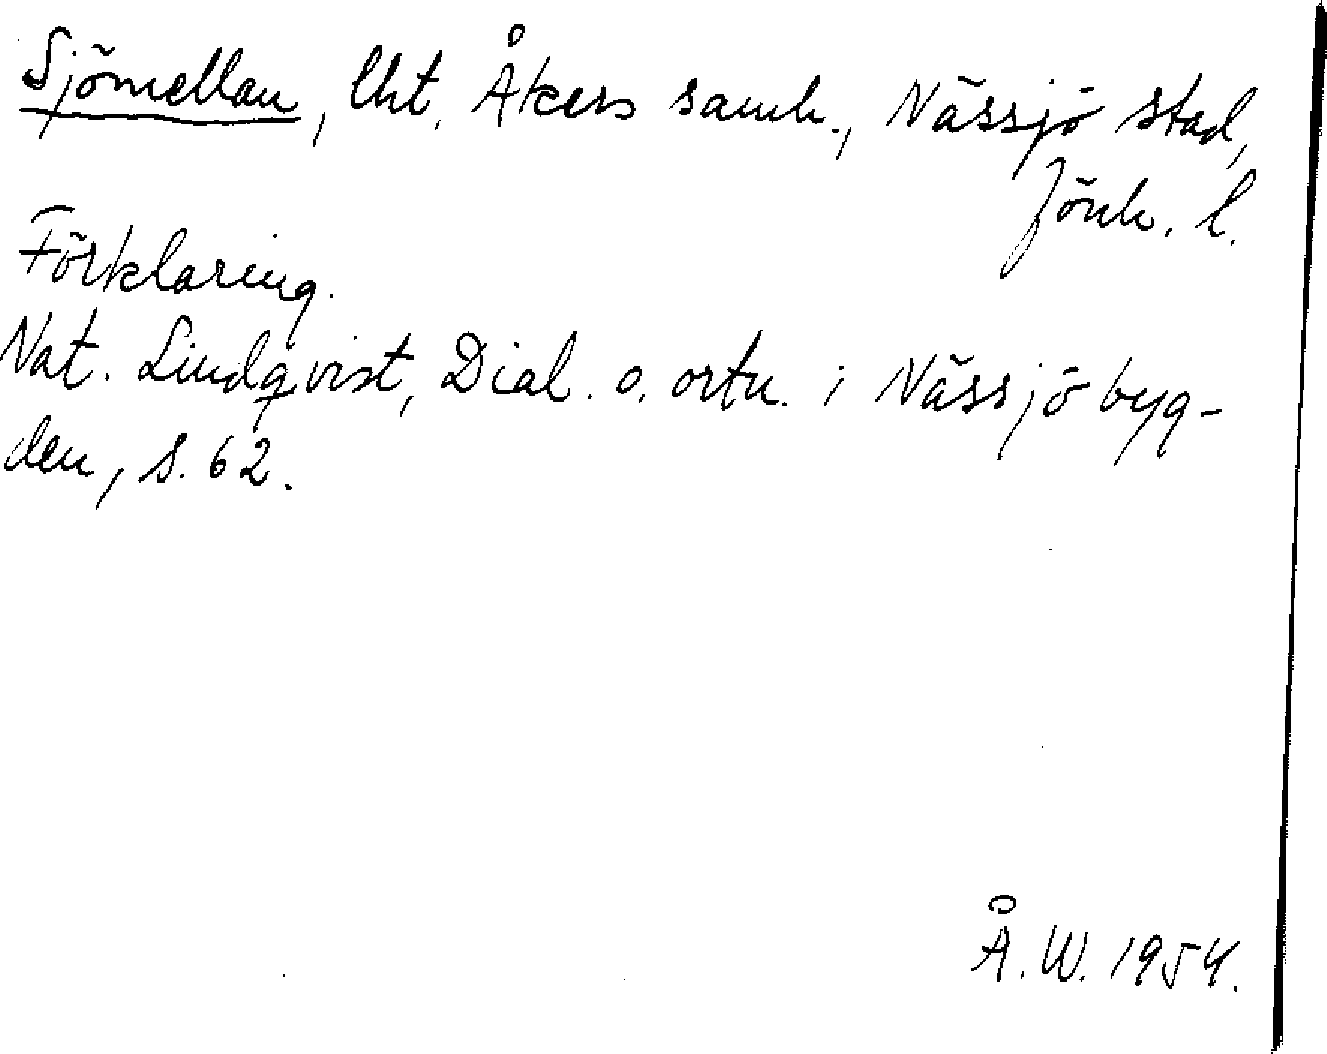 Sjömellan, lht, Åkers samh., Nässjö stad,
Jönk. l.
Förklaring.
Nat. Lindqvist, Dial. o. ortn. i Nässjöbyg-
den, s. 62.
Å. W. 1954.